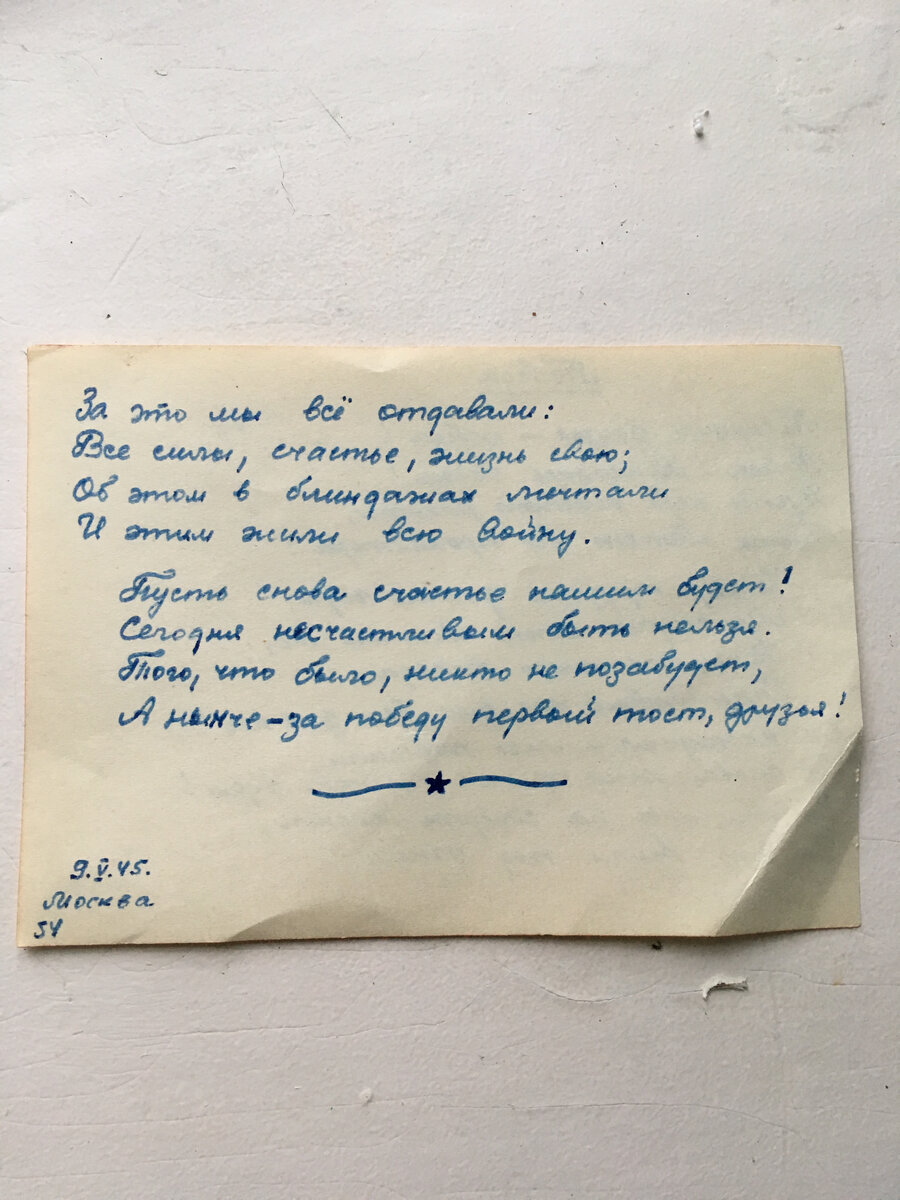 За это мы всё отдавали:
Все силы, счастье, жизнь свою;
Об этом в блиндажах мечтали
И этим жили всю войну.
Пусть снова счастье нашим будет!
Сегодня несчастливым быть нельзя.
Того, что было, никто не позабудет,
А нынче – за победу первый тост, друзья!
9.V.45.
Москва
54